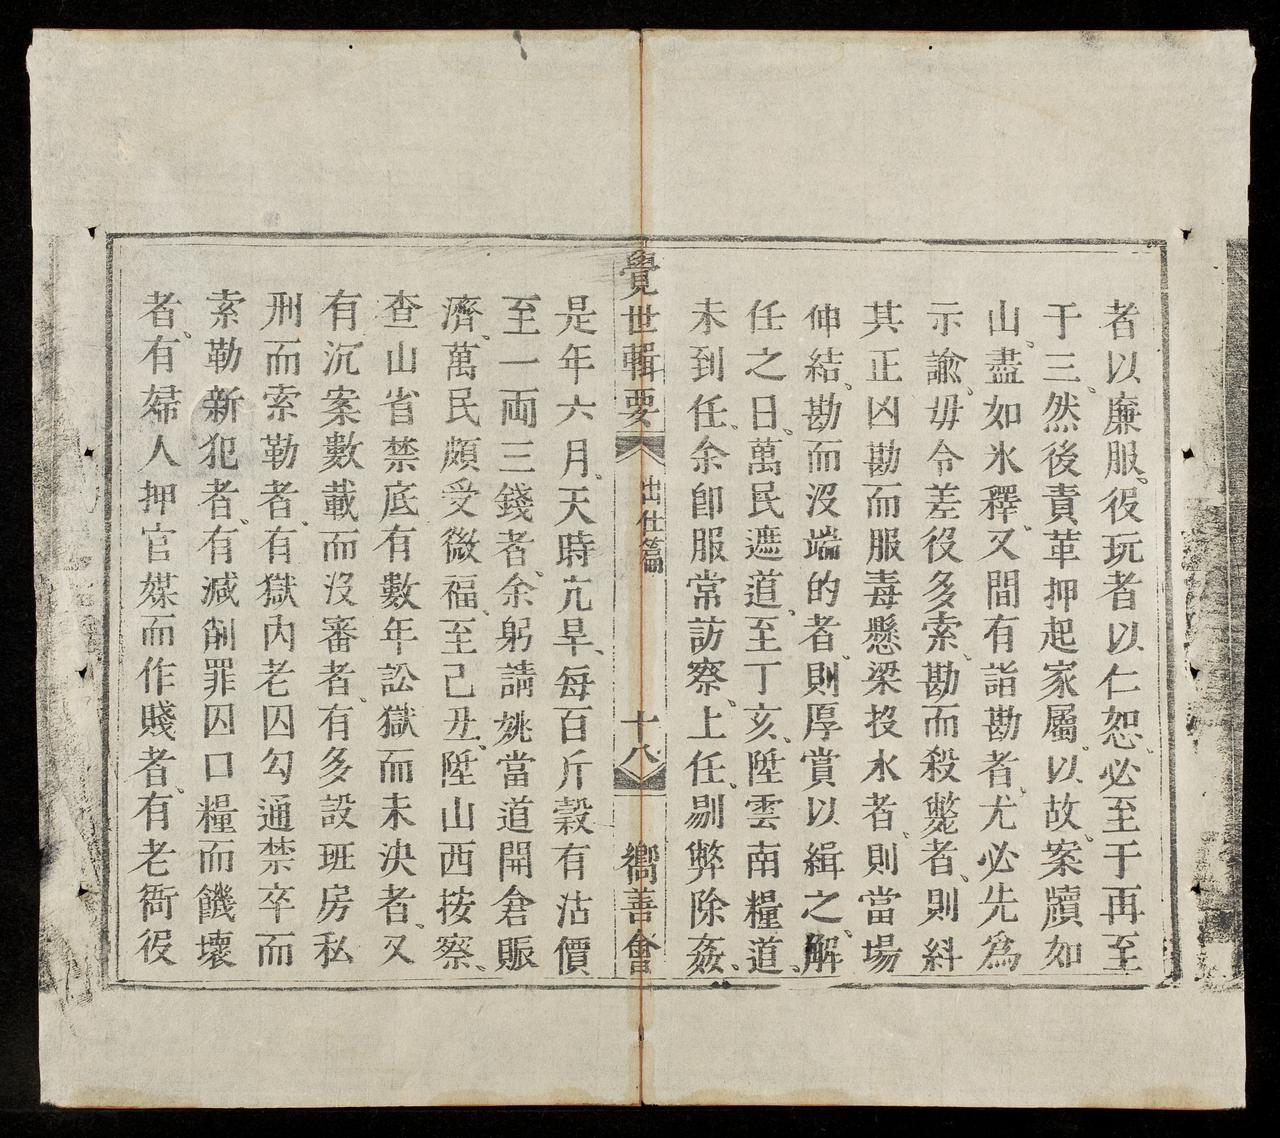 者以廉服、役玩者以仁恕、必至于再至
于三、然後責革押起家屬、以故、案牘如
山、盡如氷釋、又間有詣勘者、尤必先為
示諭、毋令差役多索、勘而殺斃者、則糾
其正凶勘而服毒懸梁投水者、則當場
伸結、勘而沒端的者、則厚賞以緝之、解
任之日、萬民遮道、至丁亥、陞雲南糧道、
未到任、余卽服常訪察、上任、剔弊除姦、
覺世輯要
出仕篇
十八
嚮善會
是年六月、天時亢旱、每百斤穀有沽價
至一両三錢者、余躬請姚當道開倉賑
濟、萬民頗受微福、至己丑、陞山西按察、
查山省禁底有數年訟獄而未決者、又
有沉案數載而沒審者、有多設班房私
刑而索勒者、有獄內老囚勾通禁卒而
索勒新犯者、有減削罪囚口糧而饑壞
者、有婦人押官媒而作賤者、有老衙役